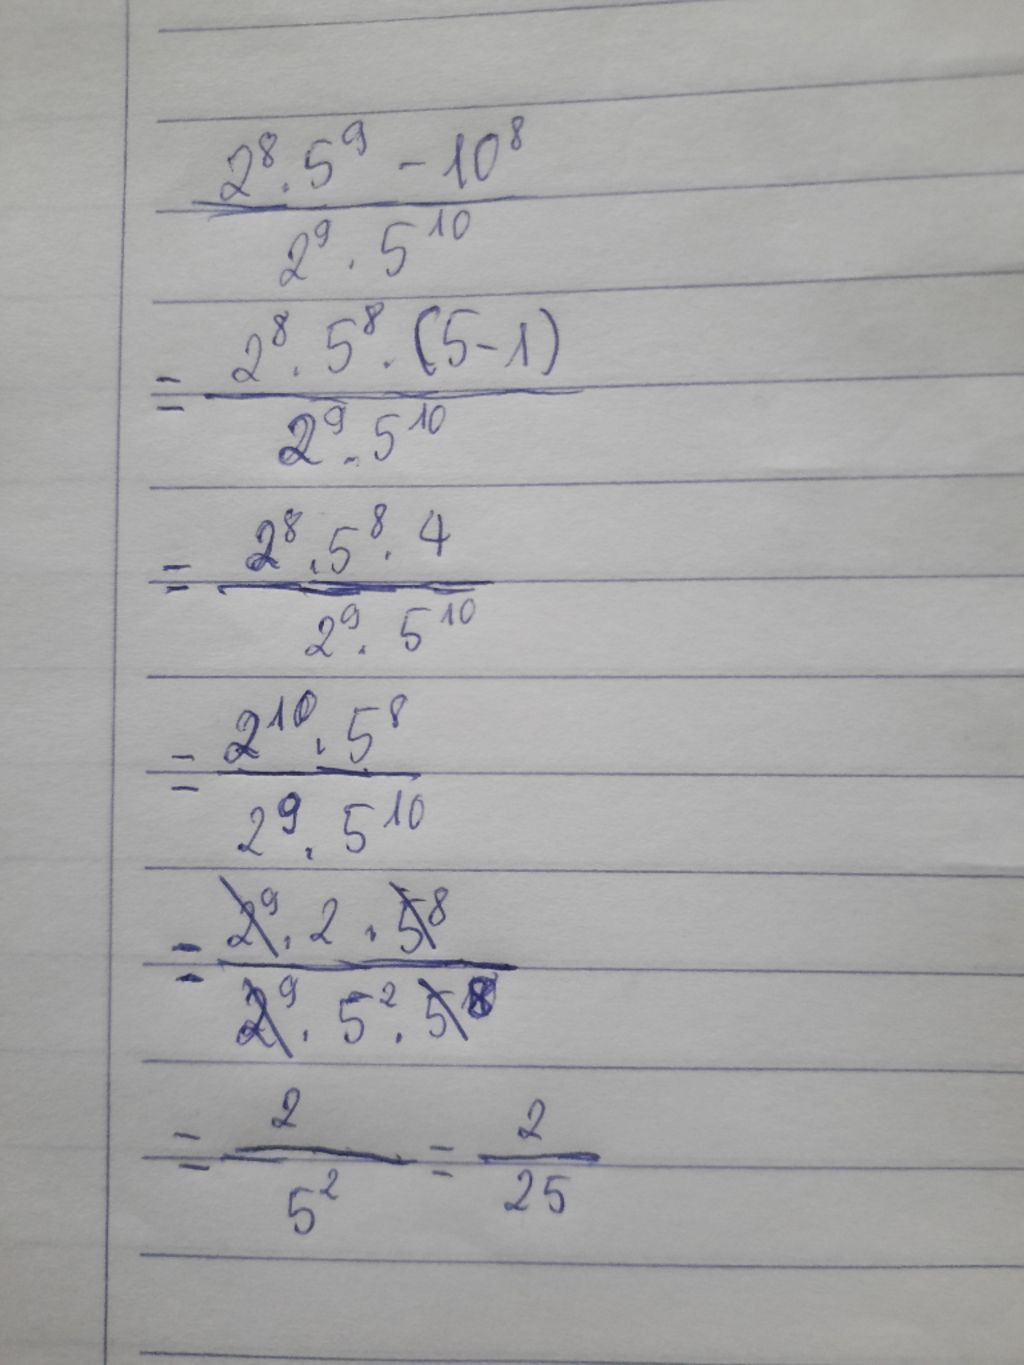 2⁸ · 5⁹ - 10⁸
2⁹ · 5¹⁰
= 2⁸ · 5⁸ · (5-1)
2⁹ · 5¹⁰
= 2⁸ · 5⁸ · 4
2⁹ · 5¹⁰
= 2¹⁰ · 5⁸
2⁹ · 5¹⁰
= 2⁹ · 2 · 5⁸
2⁹ · 5² · 5⁸
= 2 = 2
5² 25